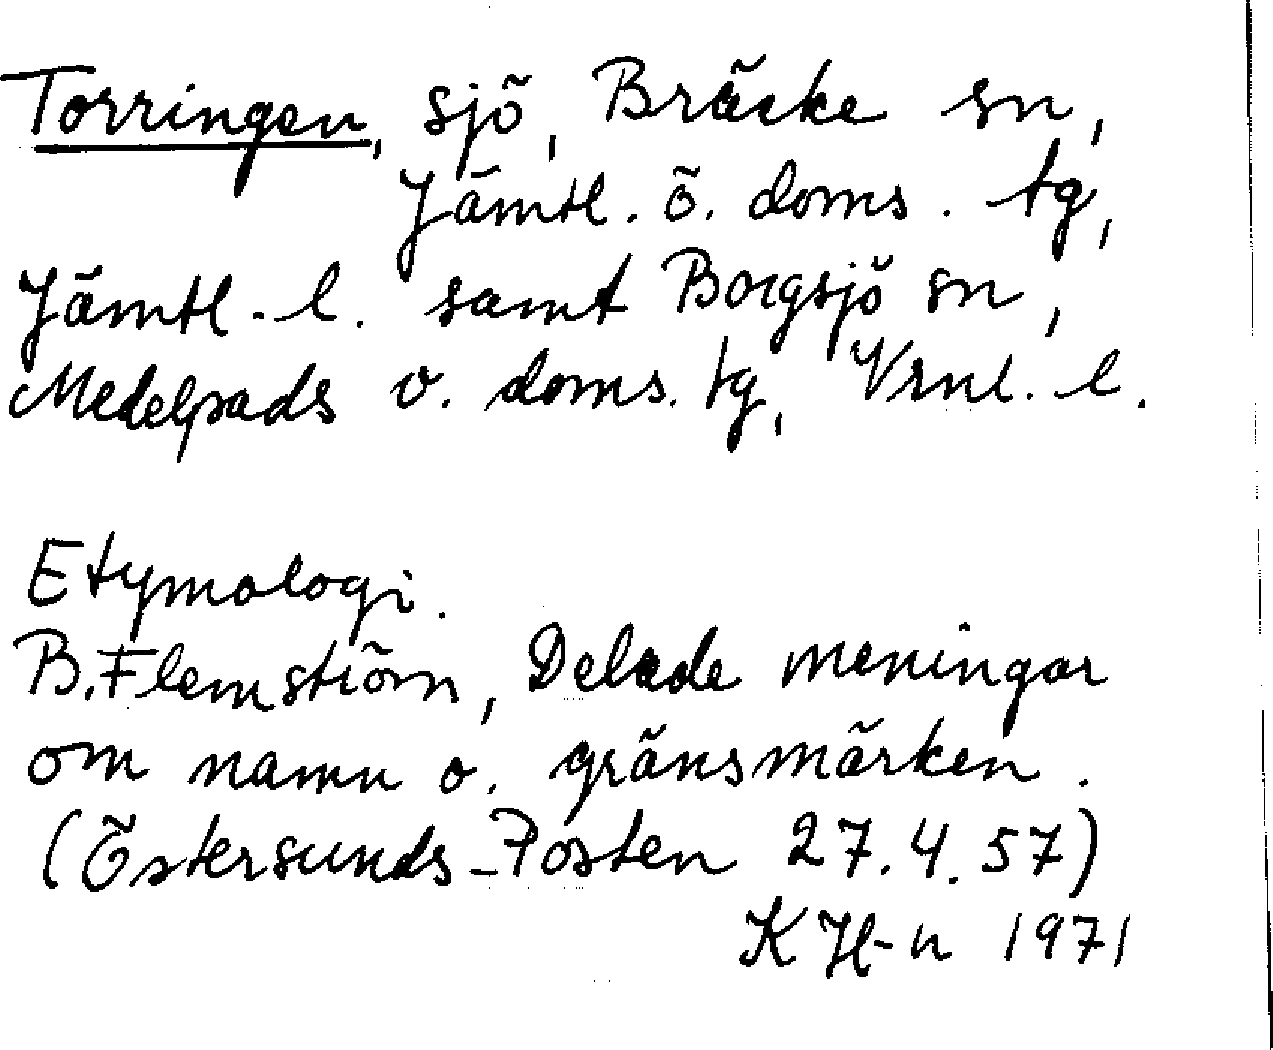 Torringen, sjö, Bräcke sn,
Jämtl. ö. doms. tg,
Jämtl. l. samt Borgsjö sn,
Medelpads v. doms. tg, Vrnl. l.
Etymologi.
B. Flemström, Delade meningar
om namn o. gränsmärken.
(Östersunds-Posten 27.4.57)
K H-n 1971